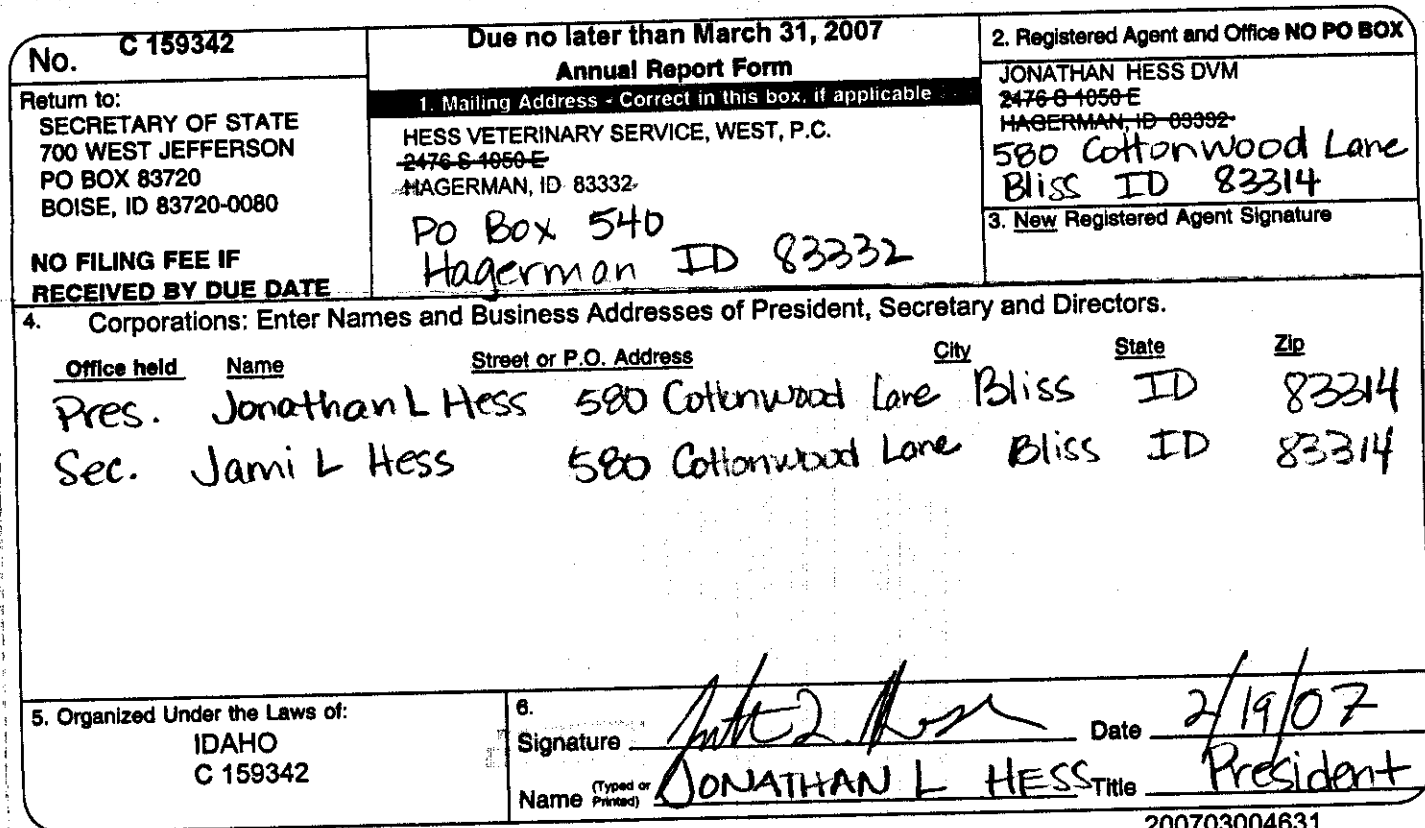 No. C 159342
Return to:
SECRETARY OF STATE
700 WEST JEFFERSON
PO BOX 83720
BOISE, ID 83720-0080
NO FILING FEE IF
RECEIVED BY DUE DATE
Due no later than March 31, 2007
Annual Report Form
1. Mailing Address - Correct in this box, if applicable
HESS VETERINARY SERVICE, WEST, P.C.
2476 S 1050 E
HAGERMAN, ID 83332
PO Box 540
Hagerman ID 83332
2. Registered Agent and Office NO PO BOX
JONATHAN HESS DVM
2476 S 1050 E
HAGERMAN, ID 83332
580 Cottonwood Lane
Bliss ID 83314
3. New Registered Agent Signature
4. Corporations: Enter Names and Business Addresses of President, Secretary and Directors.
Office held Name Street or P.O. Address City State Zip
Pres. Jonathan L Hess 580 Cottonwood Lane Bliss ID 83314
Sec. Jami L Hess 580 Cottonwood Lane Bliss ID 83314
5. Organized Under the Laws of:
IDAHO
C 159342
6.
Signature Date 2/19/07
Name (Typed or Printed) JONATHAN L HESS Title President
200703004631